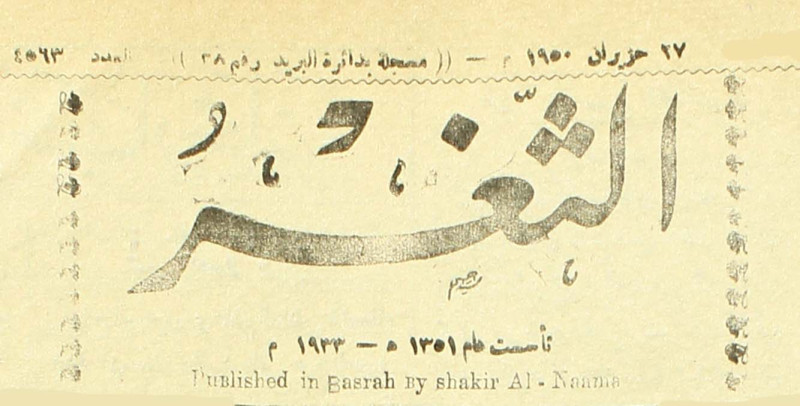 ٢٧ حزيران ١٩٥٠ م — (( مسجلة بدائرة البريد رقم ٢٨ )) العدد ٤٥٦٣
الثَّغْرُ
تأسست عام ١٣٥١ ه — ١٩٣٣ م
Published in Basrah By shakir Al - Naama